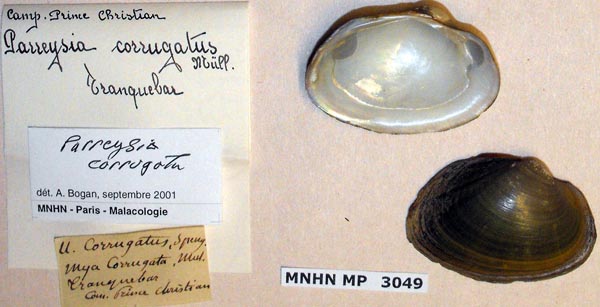 Camp. Prince Christian
Parreysia corrugatus
Müll.
Tranquebar
Parreysia
corrugata
dét. A. Bogan, septembre 2001
MNHN - Paris - Malacologie
U. Corrugatus, Speng.
Mya Corrugata, Mul.
Tranquebar
Com. Prince Christian
MNHN MP 3049